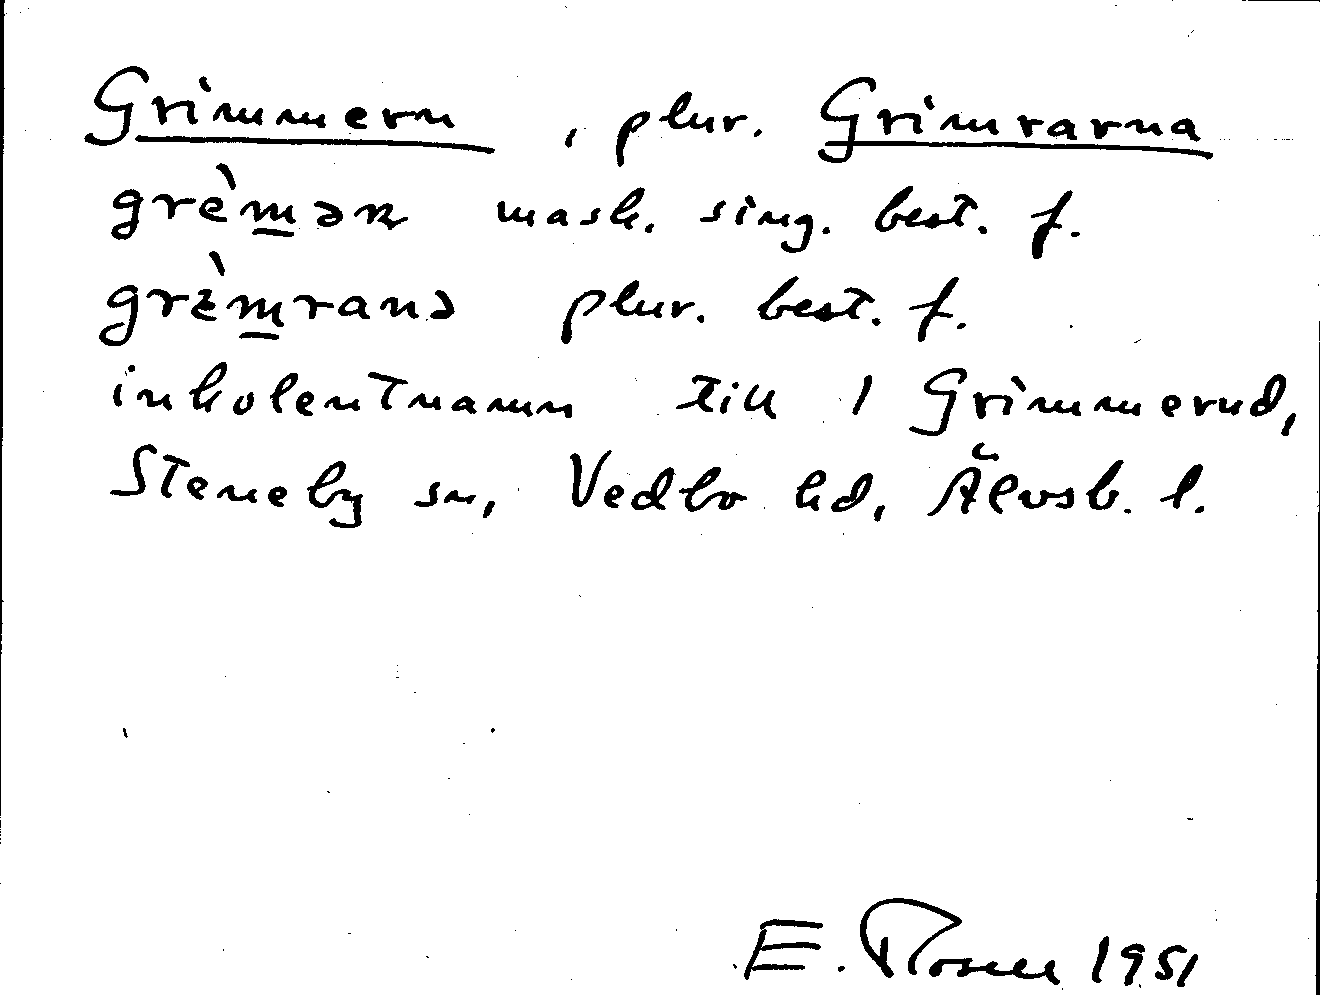 Grimmern, plur. Grimrarna
grèm̲ərn mask. sing. best. f.
grèm̲ranə plur. best. f.
inkolentnamn till 1 Grimmerud,
Steneby sn, Vedbo hd, Älvsb. l.
E. 1951